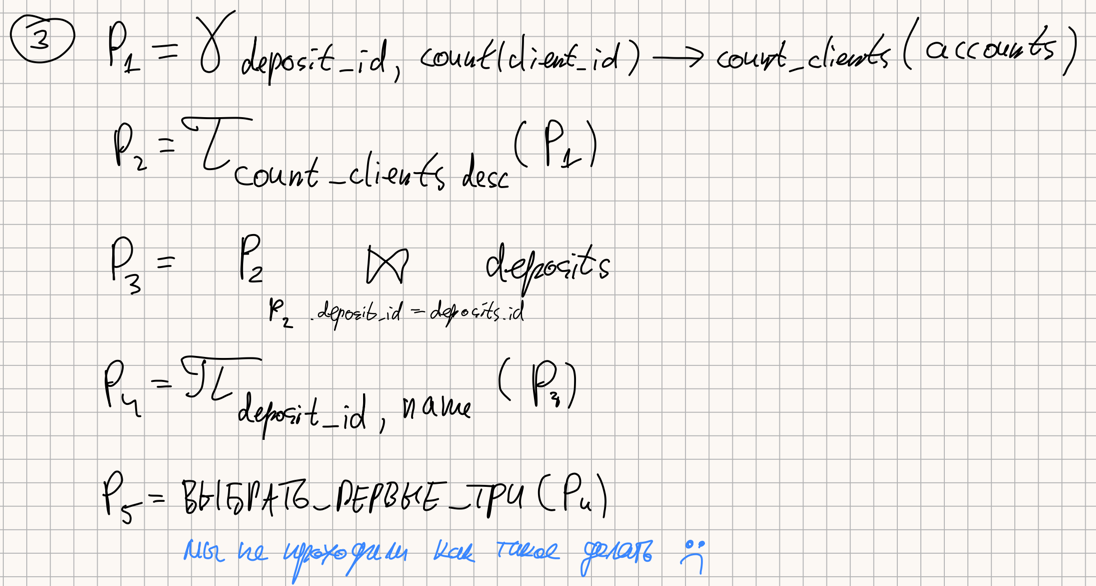 3 P1 = γ deposit_id, count(client_id) → count_clients (accounts)
P2 = τ count_clients desc (P1)
P3 = P2 ⋈ deposits
P2.deposit_id = deposits.id
P4 = π deposit_id, name (P3)
P5 = ВЫБРАТЬ_ПЕРВЫЕ_ТРИ (P4)
мы не проходили как такое делать :(